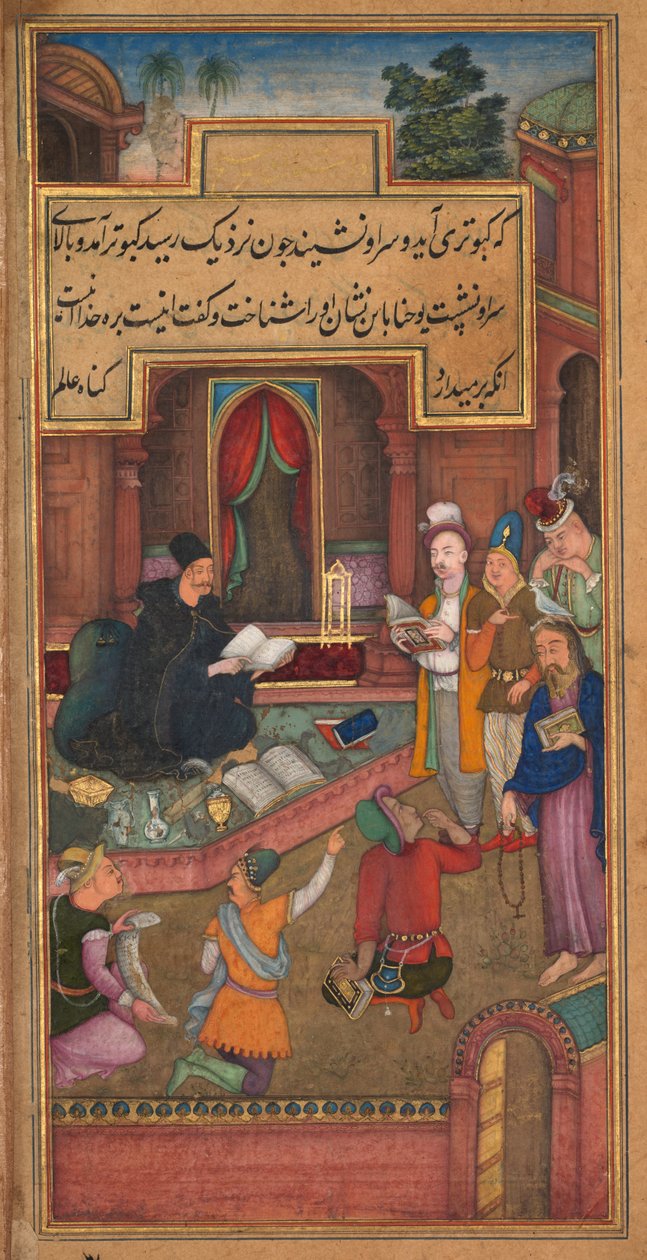 که کبوتری آید و سر او نشیند چون نزدیک رسید کبوتر آمد و بالای
سر او نشست یوحنا باین نشان او را شناخت و کفت اینست بره خدا اینست
انکه بر میدارد کناه عالم